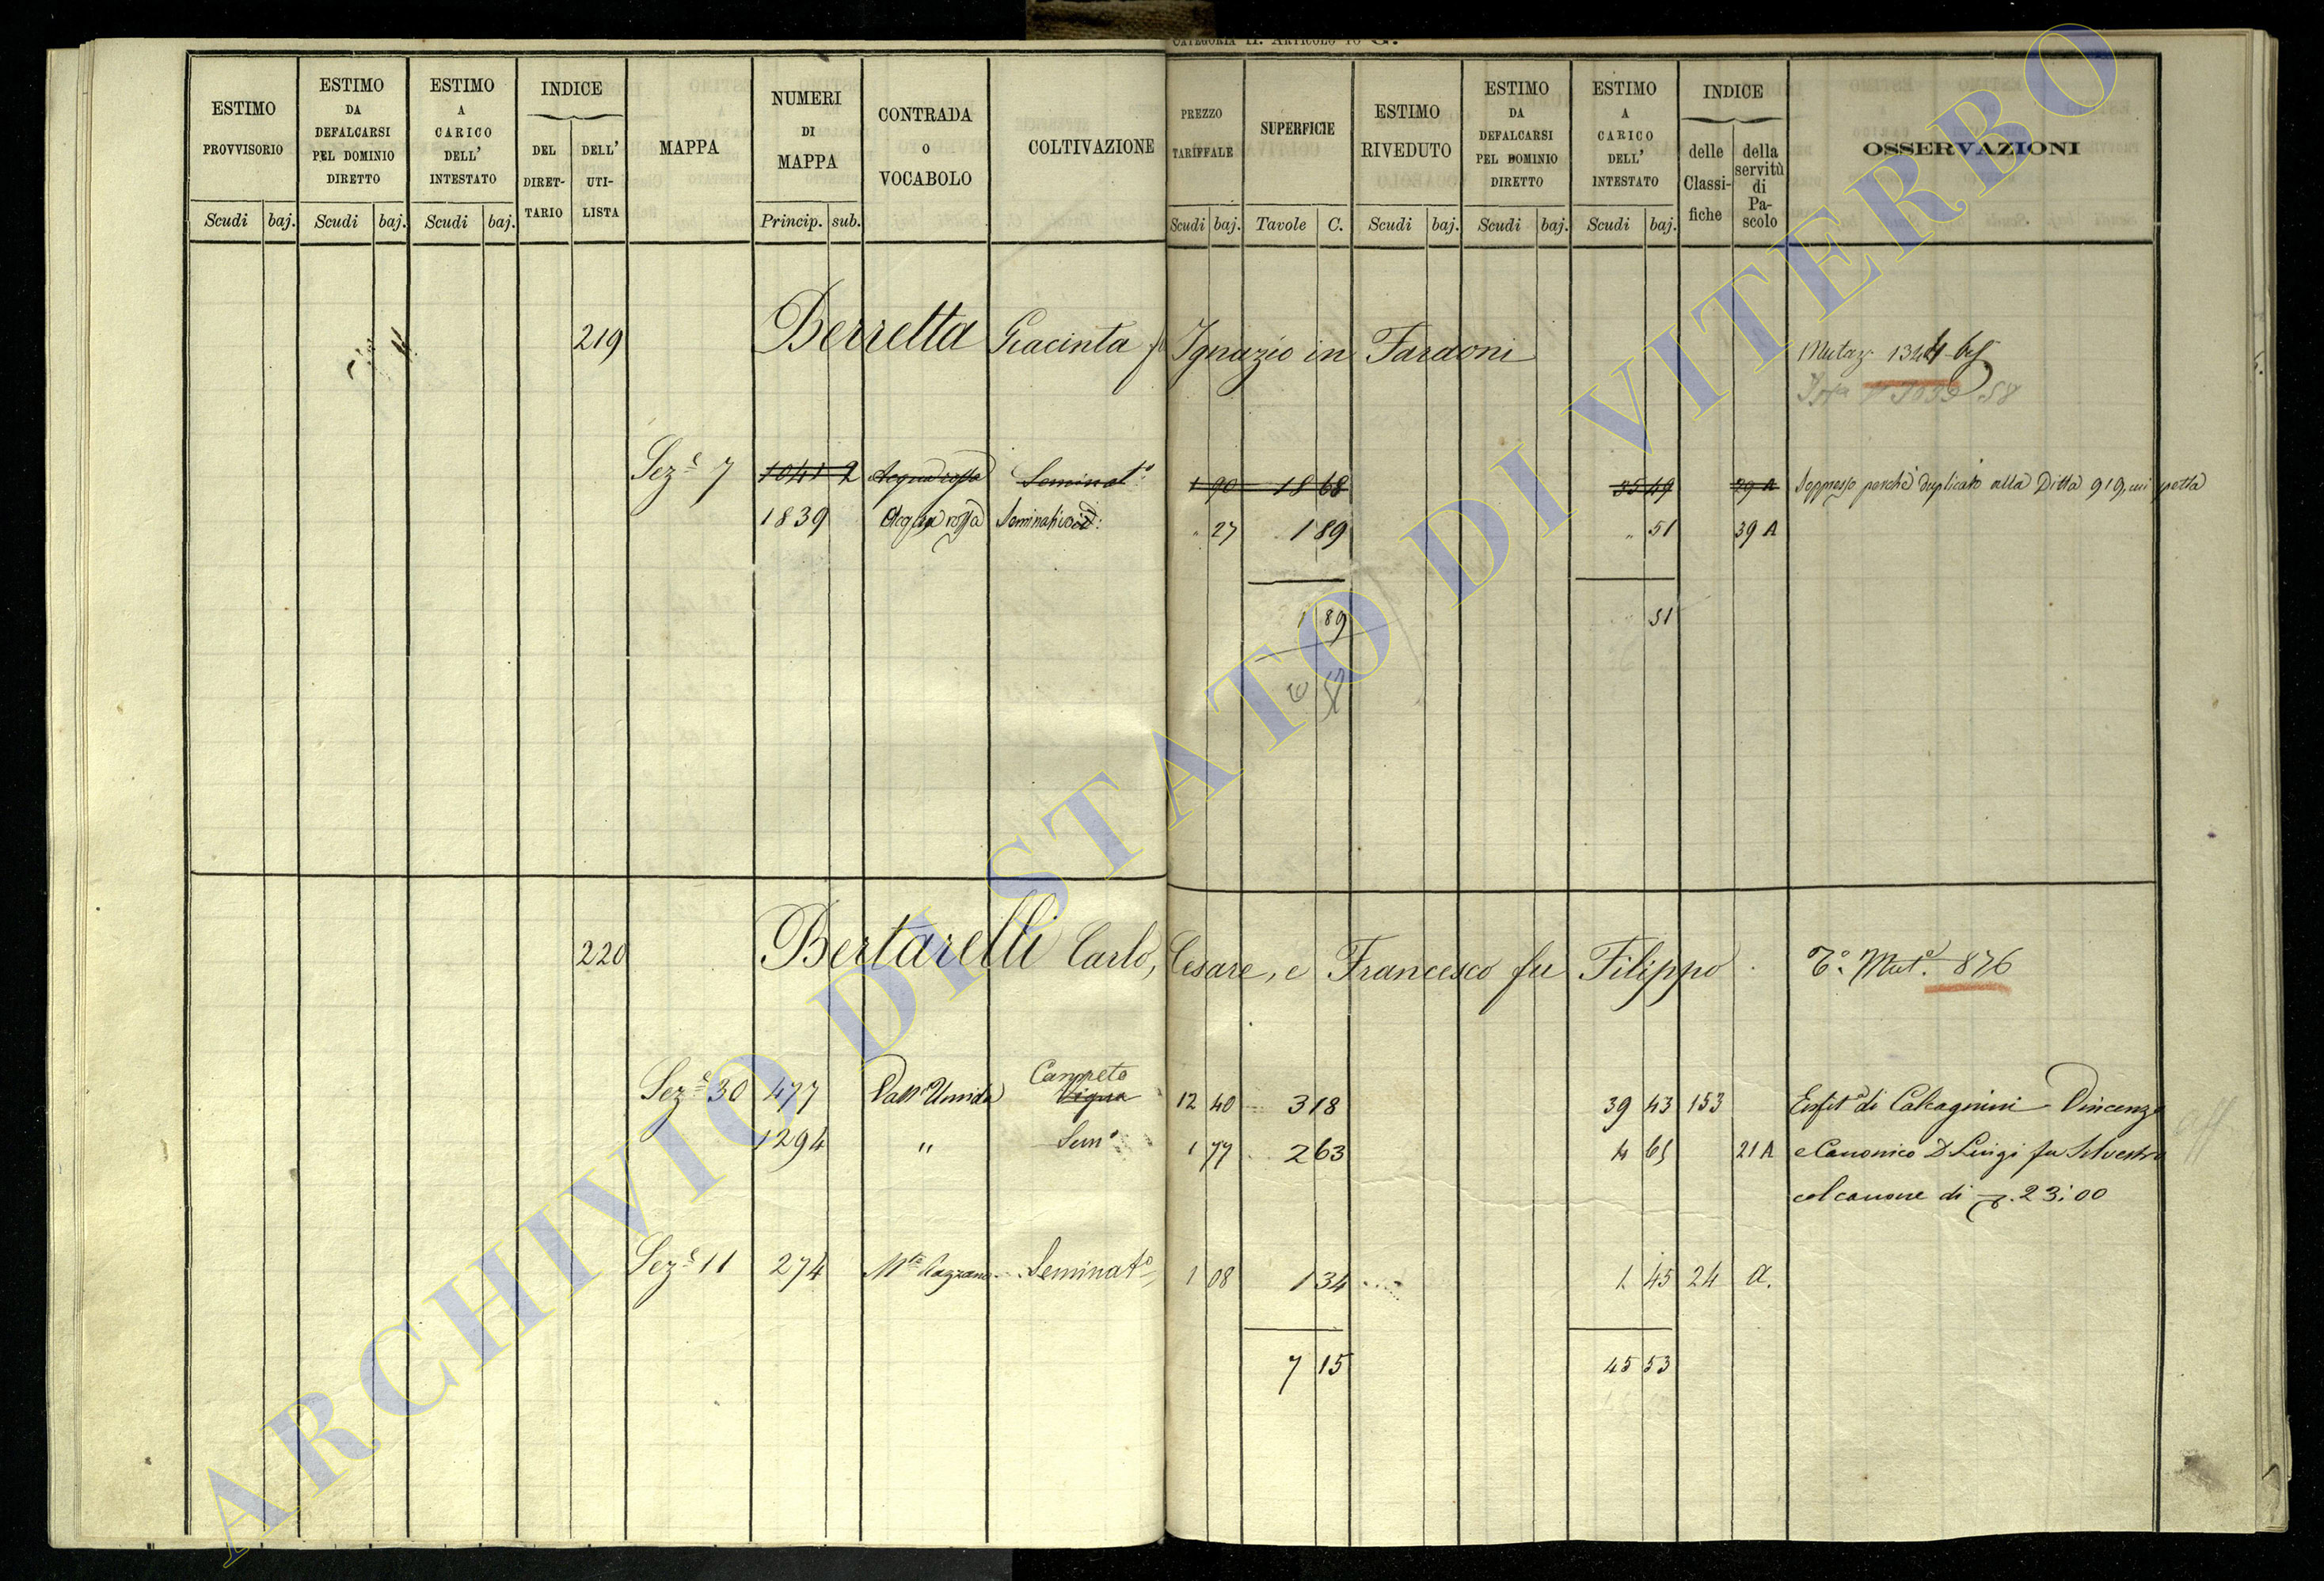 CATEGORIA II. ARTICOLO 10 G.
ESTIMO PROVVISORIO
ESTIMO DA DEFALCARSI PEL DOMINIO DIRETTO
ESTIMO A CARICO DELL' INTESTATO
INDICE
DEL DIRET-TARIO
DELL' UTI-LISTA
MAPPA
NUMERI DI MAPPA
CONTRADA O VOCABOLO
COLTIVAZIONE
PREZZO TARIFFALE
SUPERFICIE
ESTIMO RIVEDUTO
ESTIMO DA DEFALCARSI PEL DOMINIO DIRETTO
ESTIMO A CARICO DELL' INTESTATO
INDICE
delle Classi-fiche
della servitù di Pa-scolo
OSSERVAZIONI
Scudi baj. Scudi baj. Scudi baj. Princip. sub. Scudi baj. Tavole C. Scudi baj. Scudi baj. Scudi baj.
219 Berretta Giacinta fu Ignazio in Faraoni Mutaz. 1344 bis
Sez.e 7 1041 2 Acqua rossa Seminat.o 1 90 18 68 35 49 39 A Soppresso perché duplicato alla Ditta 919, cui spetta
1839 Acqua rossa Seminativo " 27 1 89 " 51 39 A
1 89 51
220 Bertarelli Carlo, Cesare, e Francesco fu Filippo. T.o Mut.e 876
Canneto
Sez.e 30 477 Valle Umida Vigna 12 40 3 18 39 43 153 Enfit.i di Calcagnini Vincenzo
1294 " Sem.o 1 77 2 63 4 65 21 A e Canonico D Luigi fu Silvestro
col canone di 23:00
Sez.e 11 274 M.te Razzano Seminat.o 1 08 1 34 1 45 24 A.
7 15 45 53
ARCHIVIO DI STATO DI VITERBO